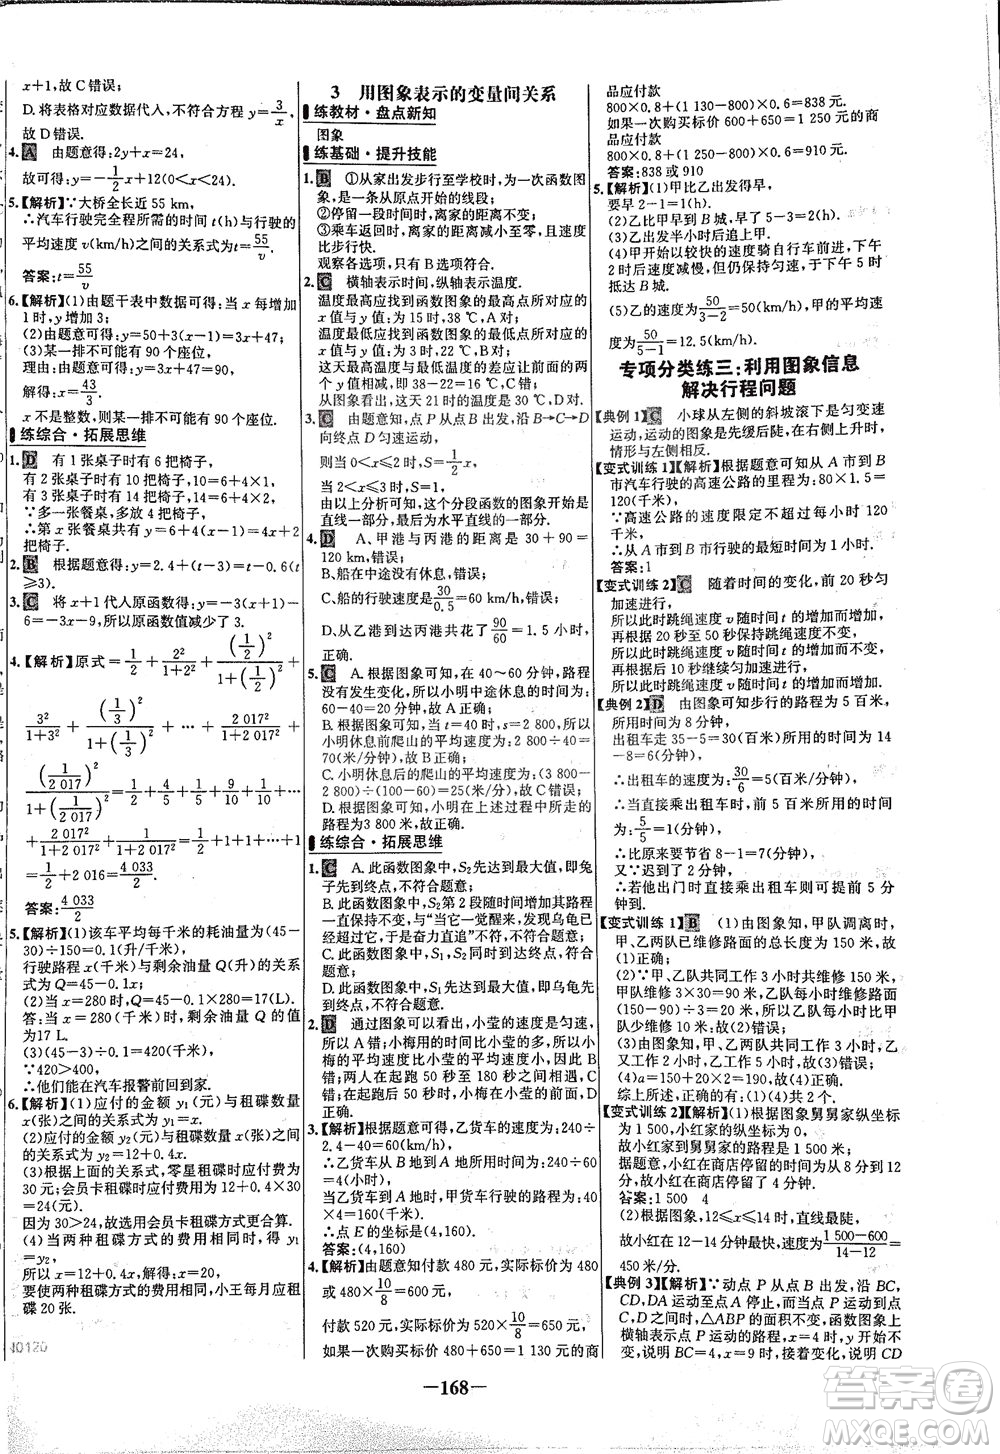 x+1,故C错误;
D. 将表格对应数据代入,不符合方程 y=3/x,
故D错误.
4. A 由题意得:2y+x=24,
故可得:y=-1/2x+12(0<x<24).
5.【解析】∵大桥全长近 55 km,
∴汽车行驶完全程所需的时间 t(h)与行驶的
平均速度 v(km/h)之间的关系式为 t=55/v.
答案:t=55/v
6.【解析】(1)由题干表中数据可得:当 x 每增加
1时,y增加3;
(2)由题意可得:y=50+3(x-1)=3x+47.
(3)某一排不可能有 90 个座位,
理由:由题意可得:y=3x+47=90,
解得:x=43/3.
x 不是整数,则某一排不可能有 90 个座位.
练综合·拓展思维
1. D 有 1 张桌子时有 6 把椅子,
有 2 张桌子时有 10 把椅子,10=6+4×1,
有 3 张桌子时有 14 把椅子,14=6+4×2,
∵多一张餐桌,多放 4 把椅子,
∴第 x 张餐桌共有 y=6+4(x-1)=4x+2
把椅子.
2. B 根据题意得:y=2.4+(t-3)=t-0.6(t
≥3).
3. C 将 x+1 代入原函数得:y=-3(x+1)-
6=-3x-9,所以原函数值减少了 3.
4.【解析】原式=1/(1+1)+2²/(1+2²)+(1/2)²/(1+(1/2)²)+
3²/(1+3²)+(1/3)²/(1+(1/3)²)+…+2 017²/(1+2 017²)+
(1/2 017)²/(1+(1/2 017)²)=1/2+(1+2²)/(1+2²)+(1+3²)/(1+3²)+…
+(1+2 017²)/(1+2 017²)=1/2+1+1+…+1
=1/2+2 016=4 033/2.
答案:4 033/2
5.【解析】(1)该车平均每千米的耗油量为(45-
30)÷150=0.1(升/千米),
行驶路程 x(千米)与剩余油量 Q(升)的关系
式为 Q=45-0.1x.
(2)当 x=280时,Q=45-0.1×280=17(L).
答:当 x=280(千米)时,剩余油量 Q 的值
为17 L.
(3)(45-3)÷0.1=420(千米),
∵420>400,
∴他们能在汽车报警前回到家.
6.【解析】(1)应付的金额 y₁(元)与租碟数量
x(张)之间的关系式为 y₁=x.
(2)应付的金额 y₂(元)与租碟数量 x(张)之间
的关系式为 y₂=12+0.4x.
(3)根据上面的关系式,零星租碟时应付费为
30 元,会员卡租碟时应付费为 12+0.4×30
=24(元).
因为 30>24,故选用会员卡租碟方式更合算.
(4)当两种租碟方式的费用相同时,得 y₁
=y₂,
所以 x=12+0.4x,解得 x=20.
要使两种租碟方式的费用相同,小王每月应租
碟 20 张.
3 用图象表示的变量间关系
练教材·盘点新知
图象
练基础·提升技能
1. B ①从家出发步行至学校时,为一次函数图
象,是一条从原点开始的线段;
②停留一段时间时,离家的距离不变;
③乘车返回时,离家的距离减小至零.
观察各选项,只有 B 选项符合.
2. C 横轴表示时间,纵轴表示温度.
温度最高应找到函数图象的最高点所对应的
x 值与 y 值:为 15 时,38 ℃,A 对;
温度最低应找到函数图象的最低点所对应的
x 值与 y 值:为 3 时,22 ℃,B 对;
这天最高温度与最低温度的差应让前面的两
个 y 值相减,即 38-22=16(℃),C 错;
从图象看出,这天 21 时的温度是 30 ℃,D 对.
3. C 由题意知,点 P 从点 B 出发,沿 B→C→D
向终点 D 匀速运动,
则当 0<x≤2 时,S=1/2x,
当 2<x≤3 时,S=1,
由以上分析可知,这个分段函数的图象开始为
直线一部分,最后为水平直线的一部分.
4. D A、甲港与丙港的距离为 30+90=
120 km,错误;
B、船在中途没有休息,错误;
C、船的行驶速度为30/0.5=60 千米/时,错误;
D、从乙港到达丙港共花了90/60=1.5 小时,
正确.
5. C A. 根据图象可知,在 40~60 分钟,路程
没有发生变化,所以小明中途休息的时间为:
60-40=20(分钟),故 A 正确.
B. 根据图象可知,当 t=40 时,s=2 800,所以
小明休息前爬山的平均速度为:2 800÷40=
70(米/分钟),故 B 正确.
C. 小明休息后的爬山的平均速度为:(3 800-
2 800)÷(100-60)=25(米/分),故 C 错误.
D. 根据图象可知,小明在上述过程中所走的
路程为 3 800 米,故 D 正确.
练综合·拓展思维
1. C A. 此函数图象中,S₂先达到最大值,即兔
子先到终点,不符合题意;
B. 此函数图象中,S₂第 2 段随时间增加其路
程一直保持不变,与“当它一觉醒来,发现乌龟已
经超过它,于是奋力直追”不符,不符合题意;
C. 此函数图象中,S₁、S₂同时到达终点,符合
题意;
D. 此函数图象中,S₁先达到最大值,即乌龟先
到终点,不符合题意.
2. D 通过图象可以看出,小莹的速度是匀速,
所以 A 错误;小梅用的时间比小莹的多,所以小
梅的平均速度比小莹的平均速度小,所以 B 错
误;两人在起跑 50 秒至 180 秒之间相遇,所以
C 错误;在起跑后 50 秒时,小梅在小莹的前面,
所以 D 正确.
3.【解析】根据题意得:乙货车的速度为:240÷
2.4-40=60(千米/时),
∴乙货车从 B 地到 A 地所用的时间为:240÷
60=4(小时),
当乙货车到达 A 地时,甲货车行驶的路程为:
40×4=160(千米),
∴点 E 的坐标是(4,160).
答案:(4,160)
4.【解析】由题意知付款 480 元,实际标价为 480
×10/8=600(元),
付款 520 元,实际标价为 520×10/8=650(元),
如果一次购买标价 480+650=1 130 元的商
品应付款
800×0.8+(1 130-800)×0.6=838 元.
如果一次购买标价 600+650=1 250 元的商
品应付款
800×0.8+(1 250-800)×0.6=910 元.
答案:838 或 910
5.【解析】(1)甲比乙出发得早,
要早 2-1=1(时).
(2)乙比甲早到 B 城.
(3)乙出发半小时后追上甲.
(4)甲开始以较快的速度骑自行车前进,下午
2 时后速度减慢,但仍保持匀速,于下午 5 时
抵达 B 城.
(5)乙的速度为50/(3-2)=50(km/h),甲的平均速
度为50/(5-1)=12.5(km/h).
专项分类练三:利用图象信息
解决行程问题
【典例 1】C 小球从左侧的斜坡滚下是匀变速
运动,运动的图象是先缓后陡,在右侧上升时,
情形与左侧相反.
【变式训练 1】【解析】根据题意可知从 A 市到 B
市汽车行驶的高速公路的里程为:80×1.5=
120(千米).
∵高速公路的速度限定不超过每小时 120
千米,
∴从 A 市到 B 市行驶的最短时间为 1 小时.
答案:1
【变式训练 2】C 随着时间的变化,前 20 秒匀
加速进行,
所以此时跳绳速度 v 随时间 t 的增加而增加,
再根据 20 秒至 50 秒保持跳绳速度不变,
所以此时跳绳速度 v 随时间 t 的增加而不变,
再根据后 10 秒继续匀加速进行,
所以此时跳绳速度 v 随时间 t 的增加而增加.
【典例 2】D 由图象可知步行的路程为 5 百米,
所用的时间为 8 分钟,
出租车走 35-5=30(百米)所用的时间为 14
-8=6(分钟),
∴出租车的速度为:30/6=5(百米/分钟),
∴当直接乘出租车时,前 5 百米所用的时间
为:5/5=1(分钟),
∴比原来要节约 8-1=7(分钟),
又∵迟到了 2 分钟,
∴若他出门时直接乘出租车则可提前 5 分钟
到达.
【变式训练 1】B (1)由图象知,甲队调离时,
甲、乙两队已维修路面的总长度为 150 米,故
(1)正确;
(2)∵甲、乙两队共同工作 3 小时共维修 150 米,
又∵甲队维修 30 米,∴乙队每小时维修路面
(150-90)÷3=20(米),故(2)错误;
(3)由图象知甲、乙共同工作 3 小时,甲离开,乙
又工作了 2 小时,乙工作了 5 小时,故(3)错误;
(4)a=150+20×(5-3)=190,故(4)正确.
综上所述,正确的共 2 个.
【变式训练 2】【解析】(1)根据图象舅舅家纵坐标
为 1 500,小红家的纵坐标为 0,
故小红家到舅舅家的路程是 1 500 米;
据题意,小红在商店停留的时间为从 8 分到 12
分,故小红在商店停留了 4 分钟.
答案:1 500 4
(2)根据图象,12≤x≤14 时,直线最陡,
故小红在 12~14 分钟最快,速度为(1 500-600)/(14-12)=
450 米/分.
【典例 3】【解析】∵动点 P 从点 B 出发,沿 BC,
CD,DA 运动至点 A 停止,而当点 P 运动到点
C,D 之间时,△ABP 的面积不变,函数图象上
横轴表示点 P 运动的路程,x=4 时,y 开始不
变,说明 BC=4,x=9 时,接着变化,说明 CD
—168—
答案圈
MXQE.COM